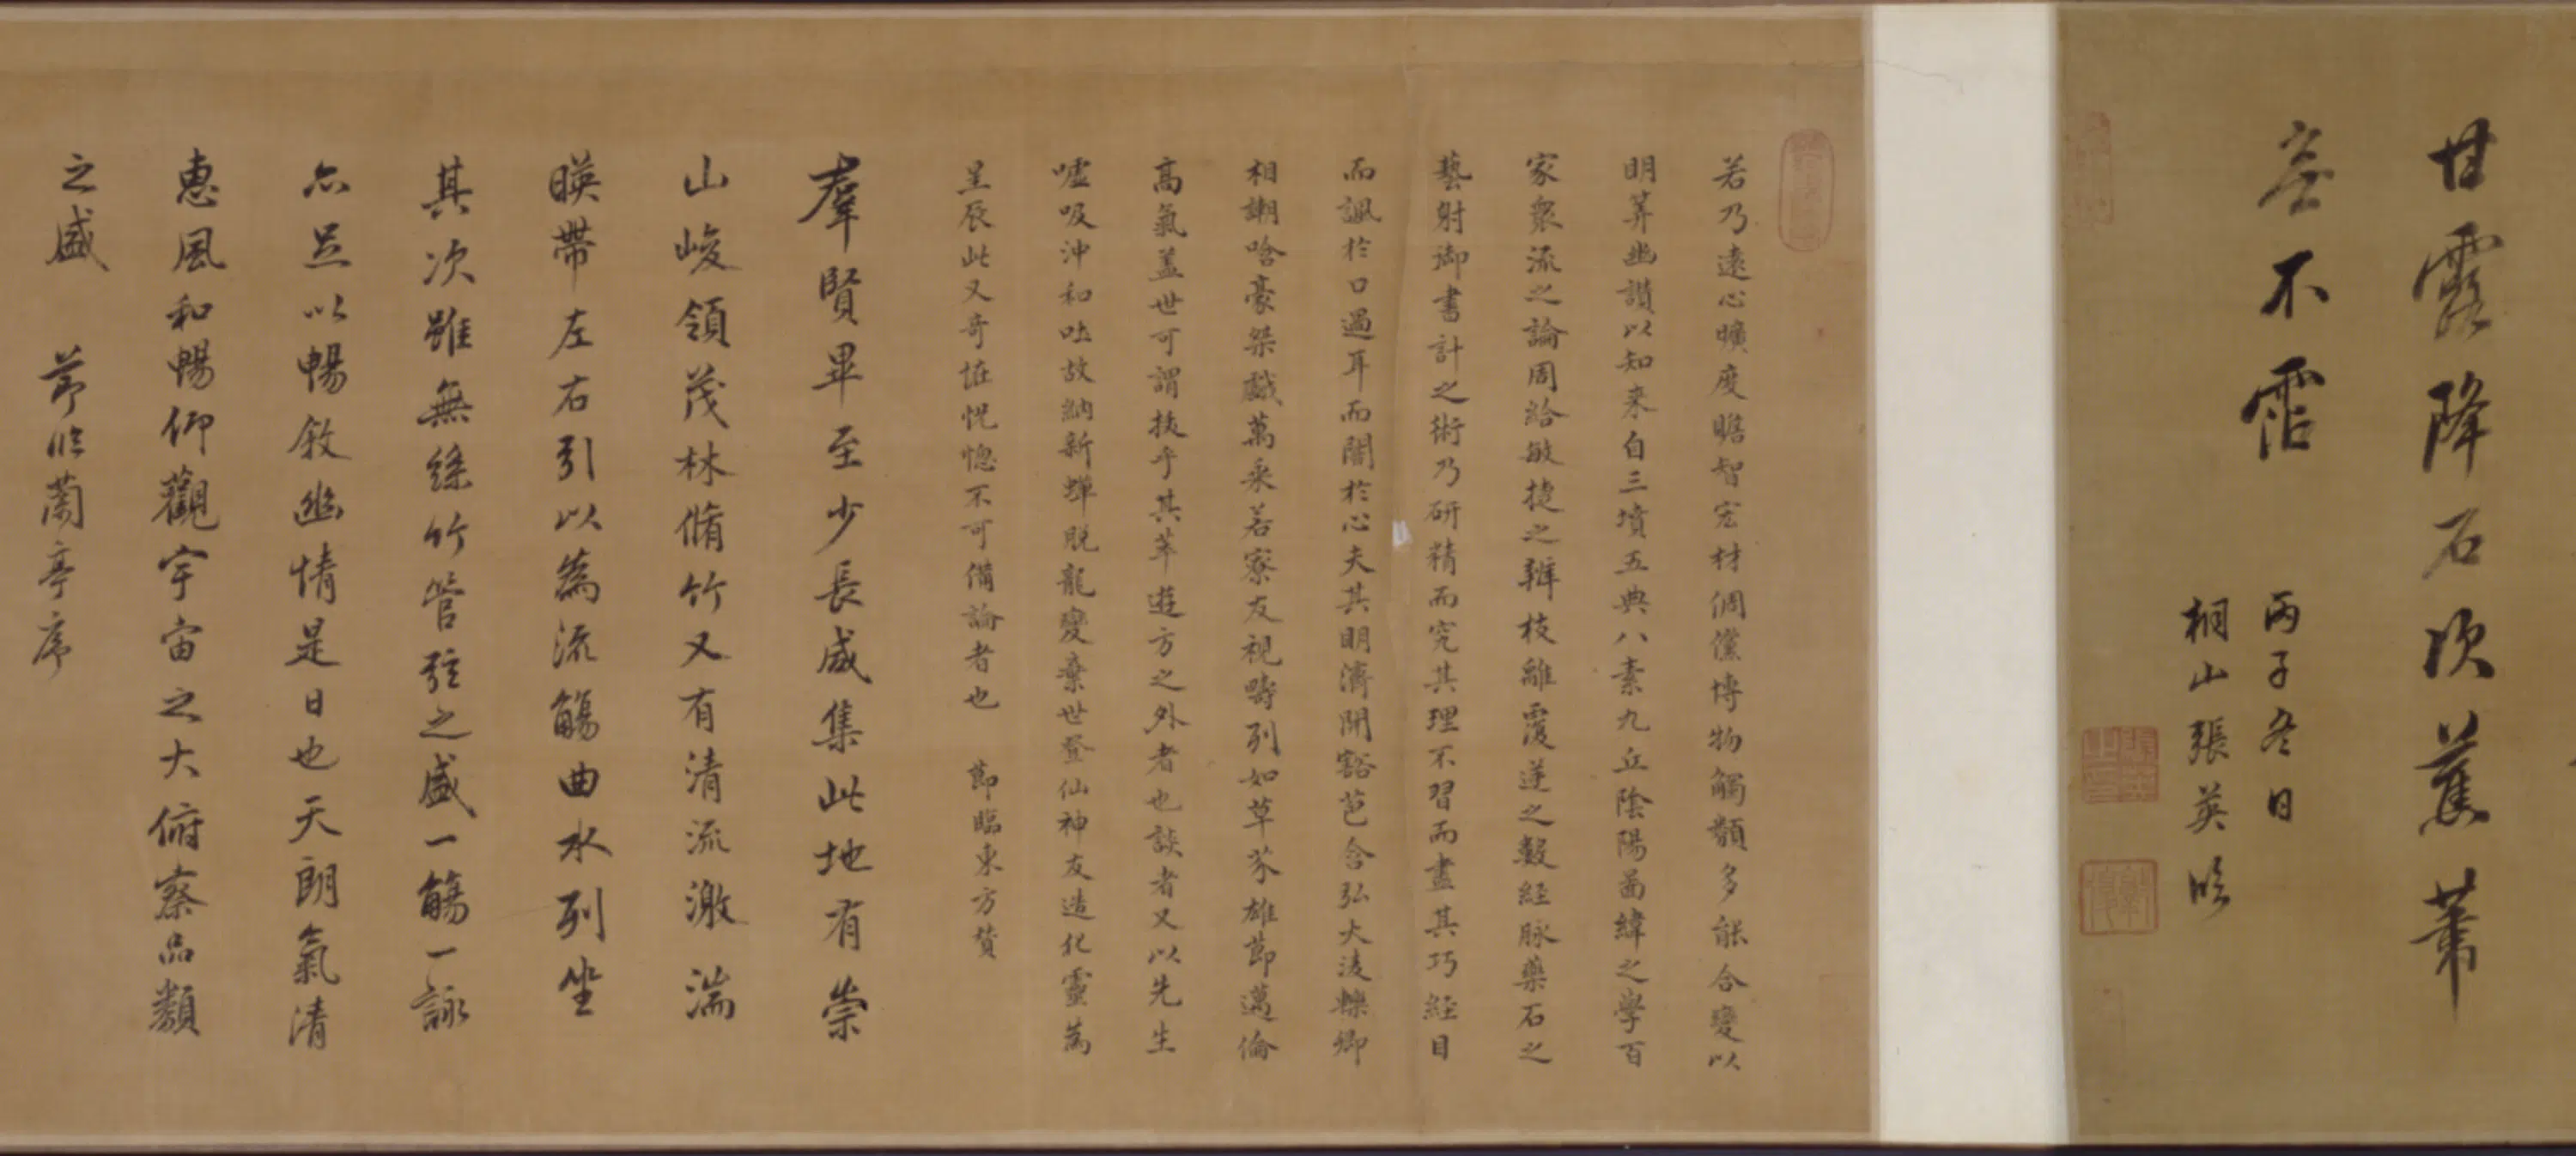 甘露降石次蕉葉
無不霑
丙子冬日
桐山張英臨
若乃遠心曠度贍智宏材倜儻博物觸類多能合變以
明筭幽讃以知来自三墳五典八素九丘陰陽啚緯之學百
家衆流之論周給敏捷之辨枝離覆逆之數経脉藥石之
藝射御書計之術乃研精而究其理不習而盡其巧経目
而諷於口過耳而闇於心夫其明濟開豁苞含弘大淩轢卿
相謿哈豪桀戲萬乗若寮友視疇列如草芥雄節邁倫
髙氣蓋世可謂拔乎其萃遊方之外者也談者又以先生
嘘吸沖和吐故納新蟬脱龍變棄世登仙神友造化靈為
星辰此又奇恠怳惚不可備論者也 節臨東方贊
羣賢畢至少長咸集此地有崇
山峻領茂林脩竹又有清流激湍
暎帶左右引以為流觴曲水列坐
其次雖無絲竹管弦之盛一觴一詠
亦足以暢敘幽情是日也天朗氣清
惠風和暢仰觀宇宙之大俯察品類
之盛 節臨蘭亭序